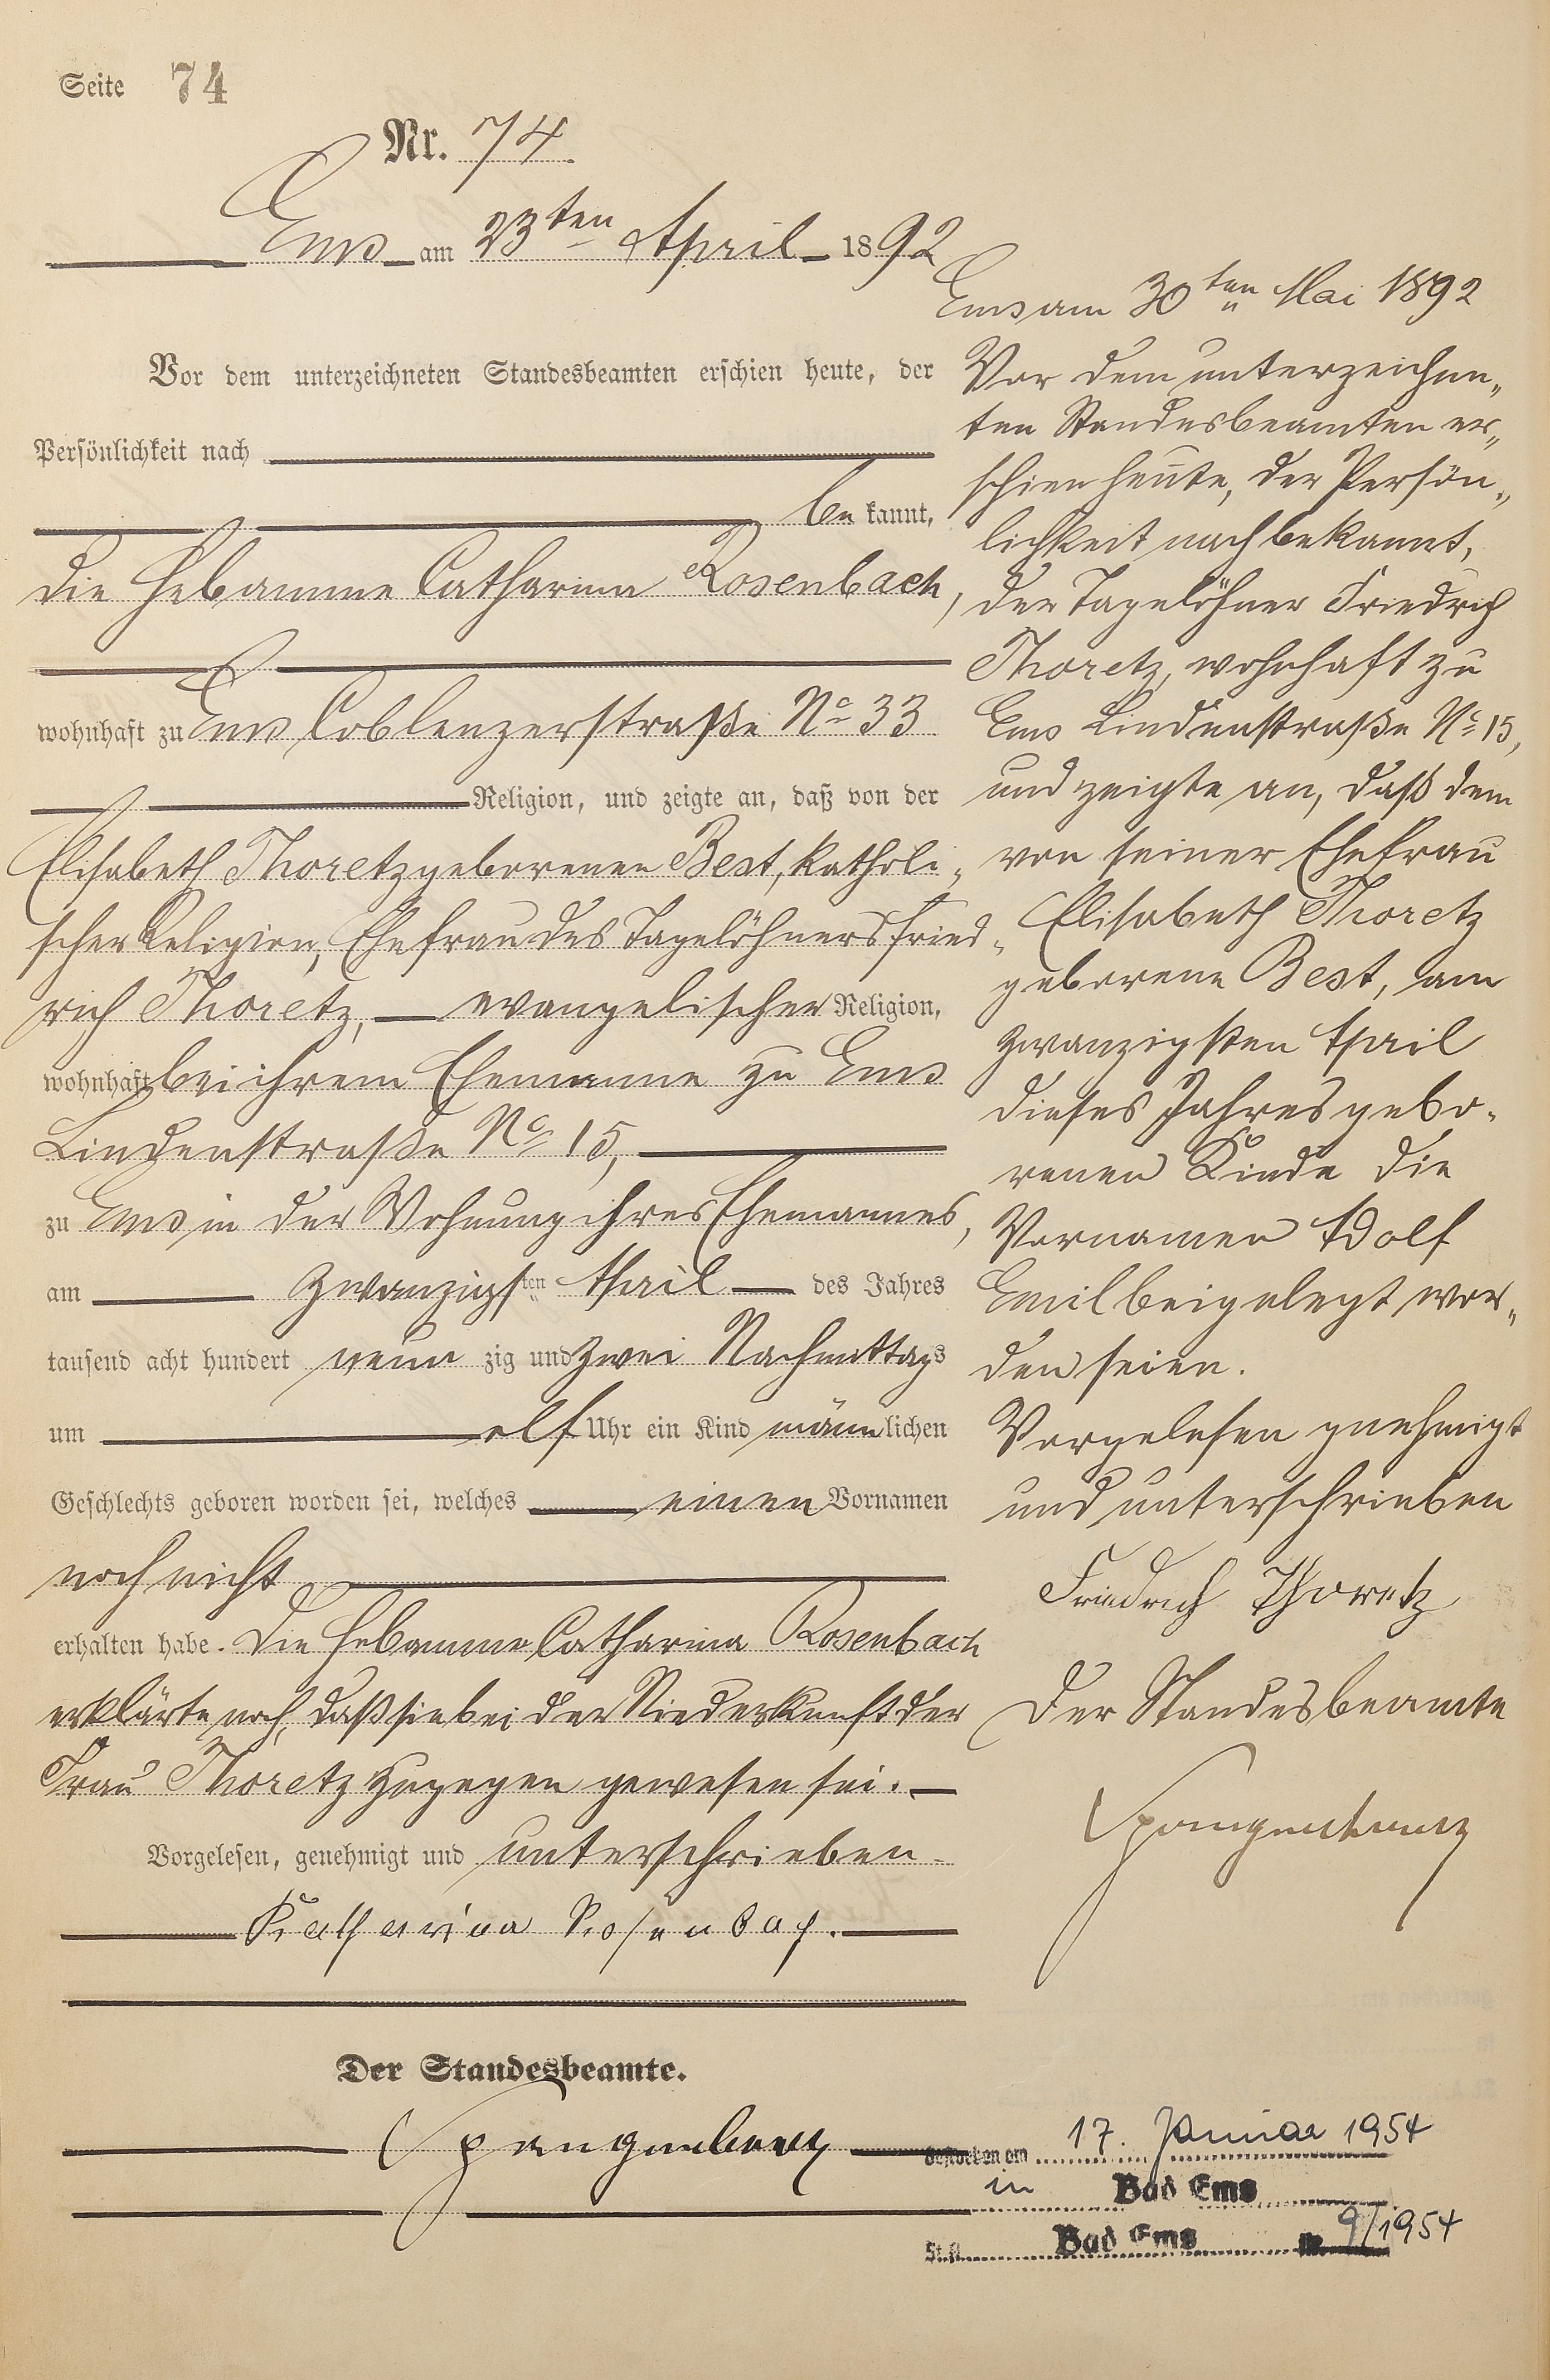 Seite 74
Nr. 74
Ems am 23ten April 1892
Vor dem unterzeichneten Standesbeamten erschien heute, der
Persönlichkeit nach
be kannt,
die Hebamme Catharina Rosenbach,
wohnhaft zu Ems Coblenzerstraße No 33
Religion, und zeigte an, daß von der
Elisabeth Thoretz geborenen Best, katholi„
scher Religion, Ehefrau des Tagelöhners Fried„
rich Thoretz, evangelischer Religion,
wohnhaft bei ihrem Ehemanne zu Ems
Lindenstraße No 15,
zu Ems in der Wohnung ihres Ehemannes,
am zwanzigsten April des Jahres
tausend acht hundert neun zig und zwei Nachmittags
um elf Uhr ein Kind männlichen
Geschlechts geboren worden sei, welches einen Vornamen
noch nicht
erhalten habe. Die Hebamme Catharina Rosenbach
erklärte noch, daß sie bei der Niederkunft der
Frau Thoretz zugegen gewesen sei.
Vorgelesen, genehmigt und unterschrieben
Katharina Rosenbach.
Der Standesbeamte.
Spangenberg
Ems am 30ten Mai 1892
Vor dem unterzeichne„
ten Standesbeamten er„
schien heute, der Persön„
lichkeit nach bekannt,
der Tagelöhner Friedrich
Thoretz, wohnhaft zu
Ems Lindenstraße No 15,
und zeigte an, daß dem
von seiner Ehefrau
Elisabeth Thoretz
geborene Best, am
zwanzigsten April
dieses Jahres gebo„
renen Kinde die
Vornamen Adolf
Emil beigelegt wor„
den seien.
Vorgelesen genehmigt
und unterschrieben
Friedrich Thoretz
Der Standesbeamte
Spangenberg
Gestorben am 17. Januar 1954
in Bad Ems
St.A. Bad Ems Nr. 9/1954